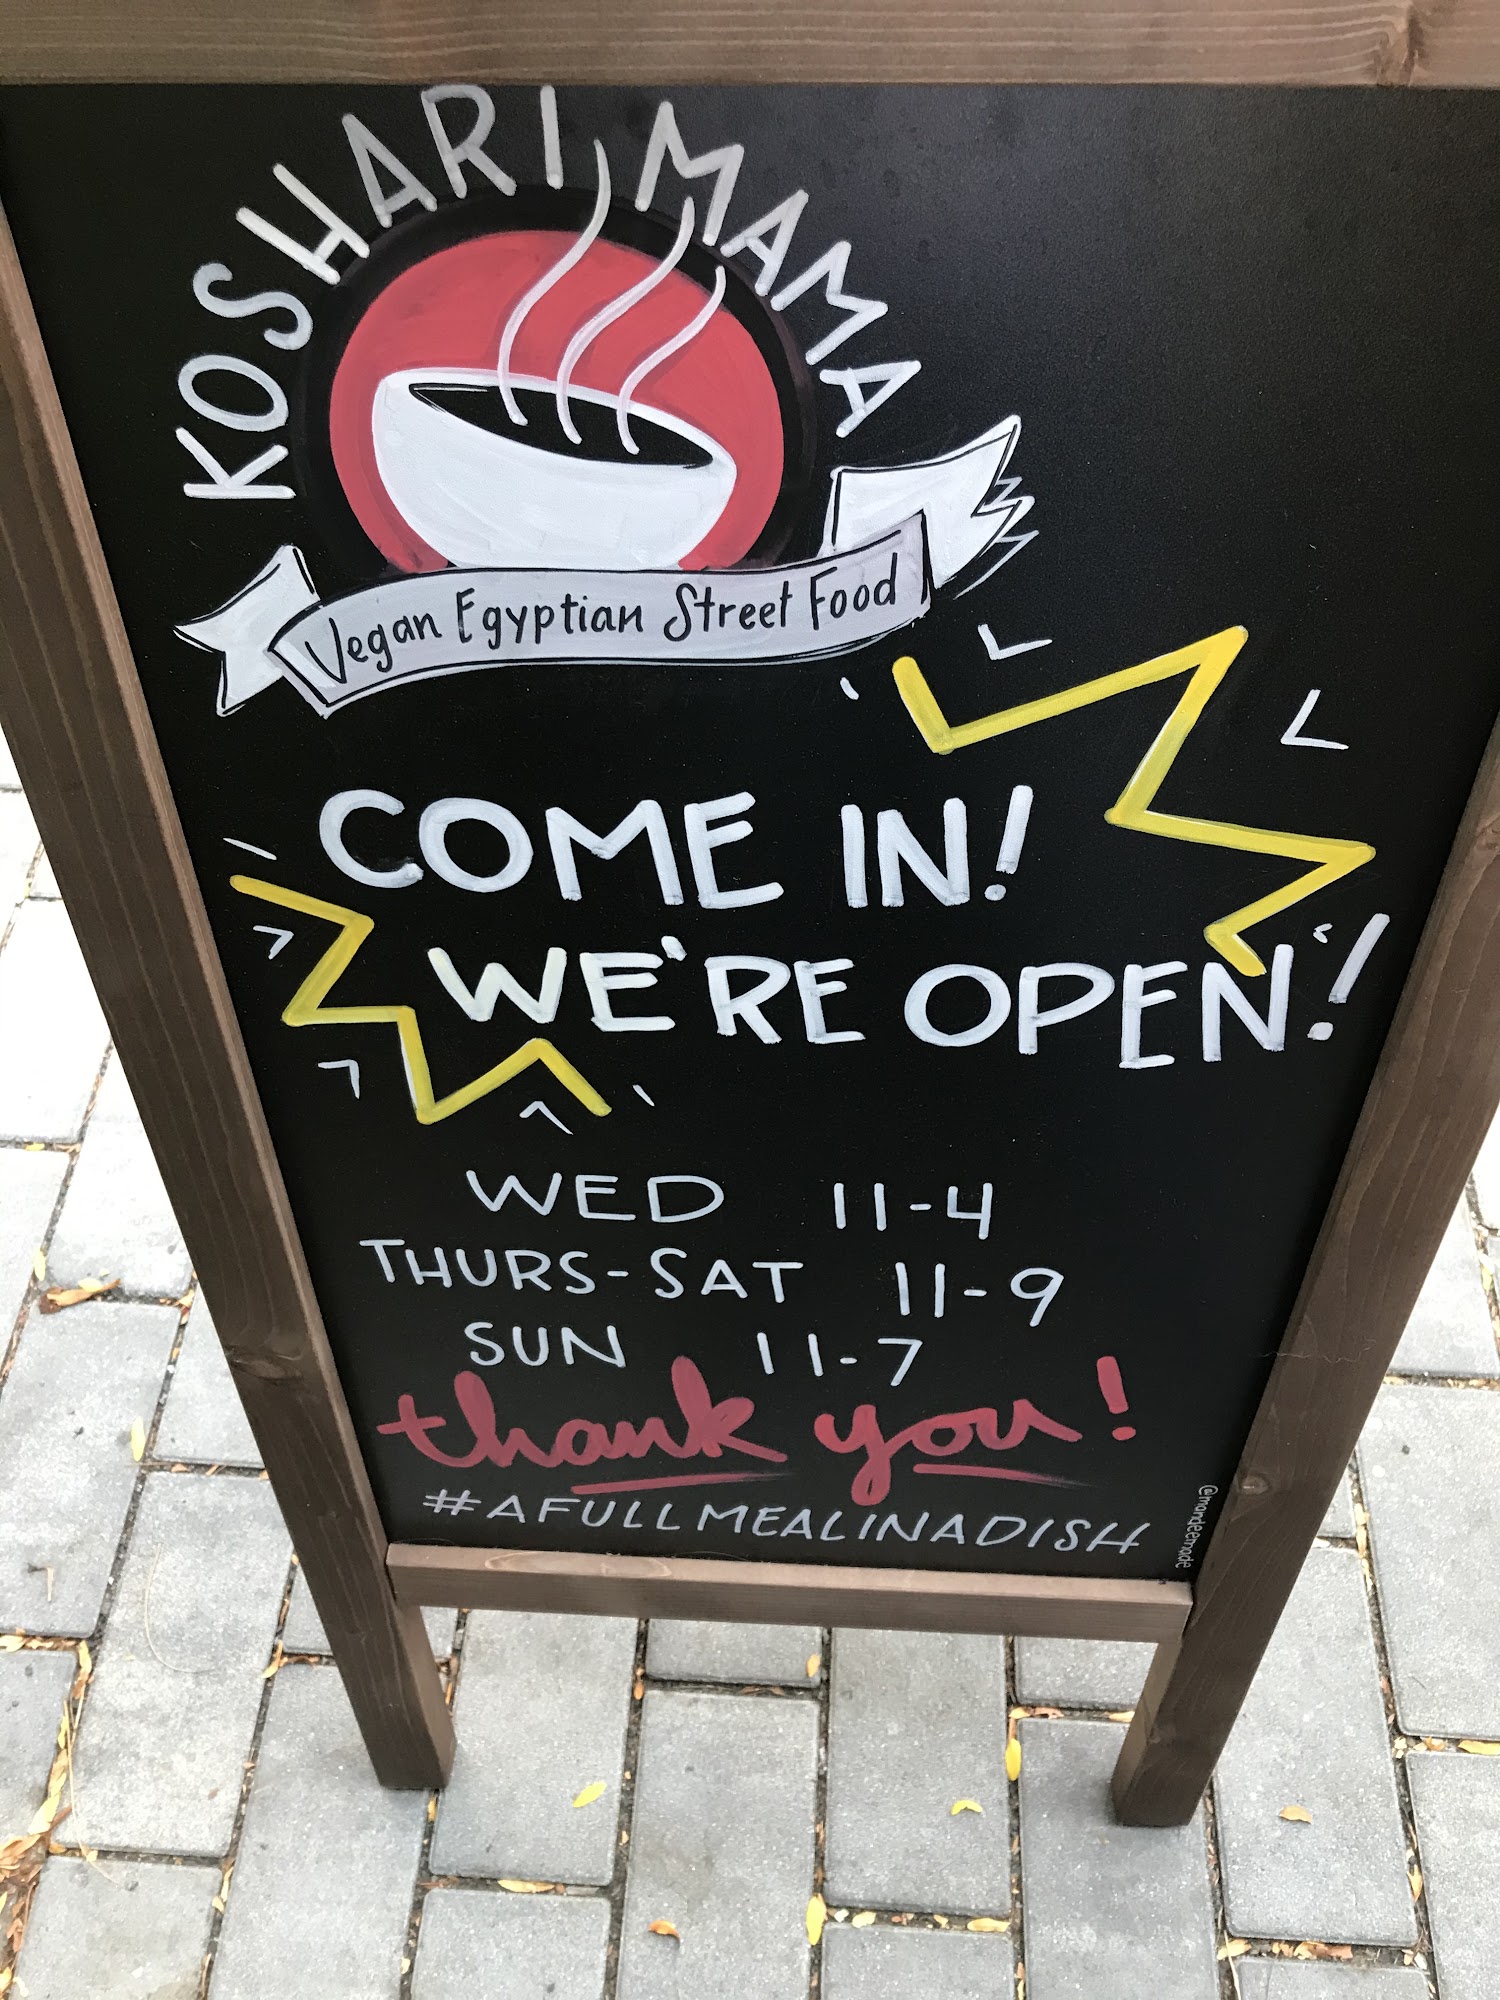 KOSHARI MAMA
Vegan Egyptian Street Food
COME IN!
WE'RE OPEN!
WED 11-4
THURS-SAT 11-9
SUN 11-7
thank you!
#AFULLMEALINADISH
@mandeemade